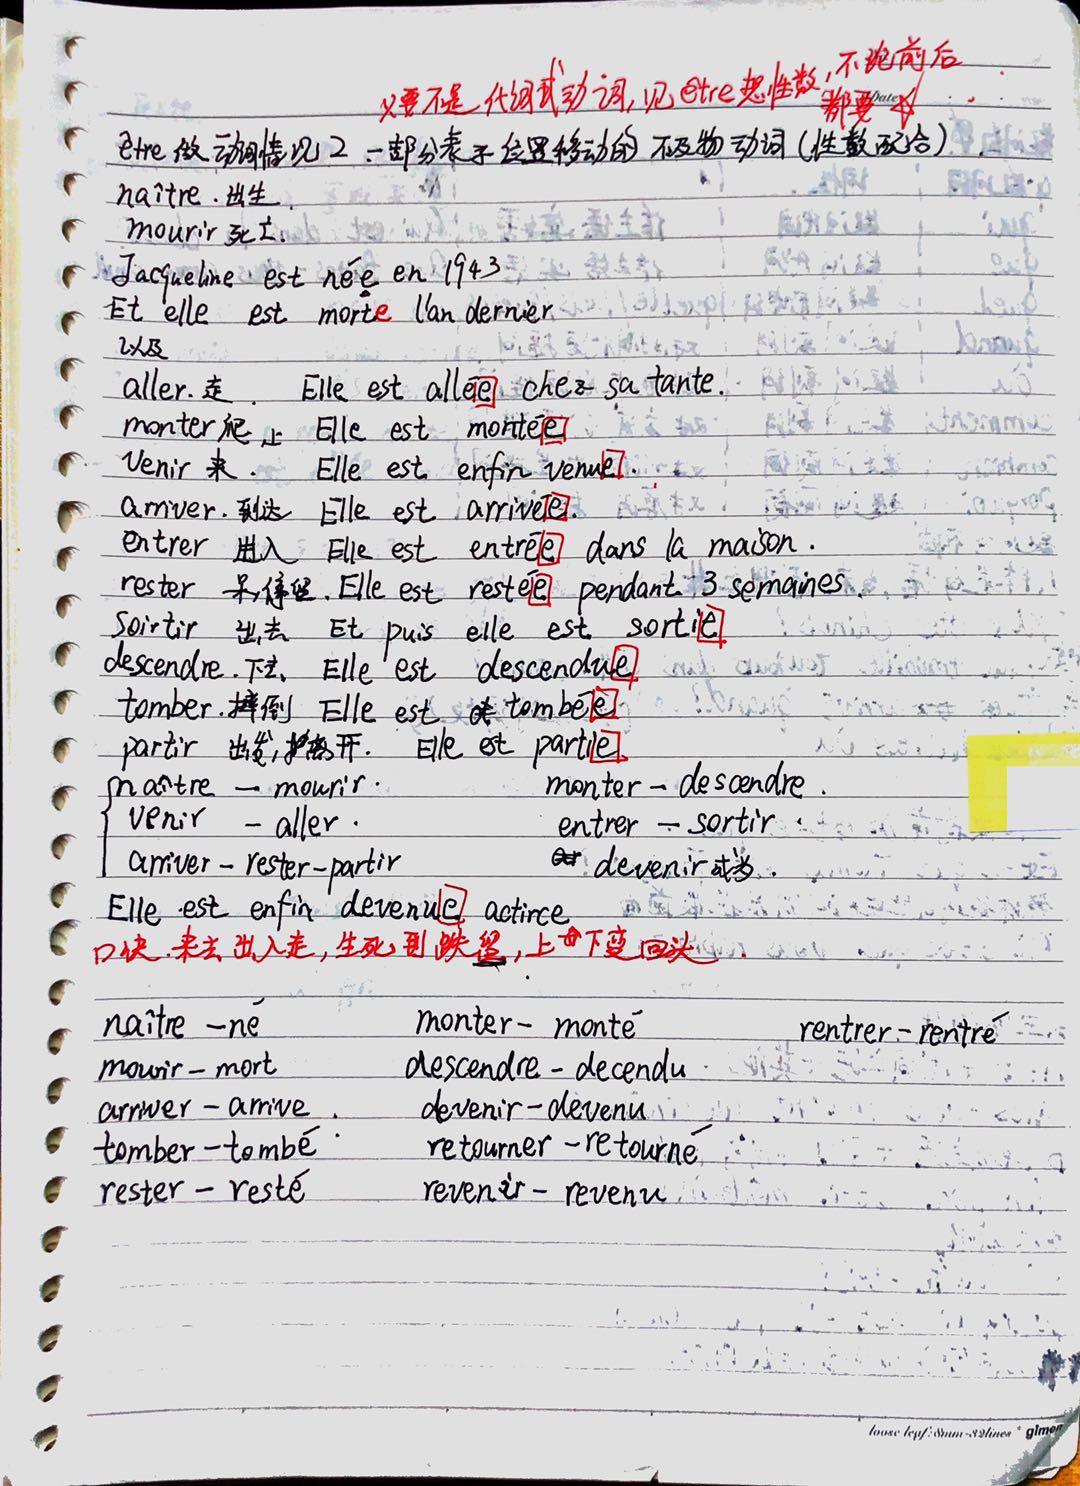 又要不是代词式动词,见être想性数,不论前后
都要☆
Date
être做动词情况2 一部分表示位置移动的不及物动词(性数配合).
naître.出生.
mourir 死亡.
Jacqueline est née en 1943
Et elle est morte l'an dernier
以及
aller.走. Elle est allée chez sa tante.
monter 爬上 Elle est montée
Venir 来. Elle est enfin venue.
arriver.到达 Elle est arrivée.
entrer 出入 Elle est entrée dans la maison.
rester 呆,停留. Elle est restée pendant 3 semaines.
Soirtir 出去 Et puis elle est sortie
descendre.下去. Elle est descendue
tomber.摔倒 Elle est tombée
partir 出发,离开. Elle est partie
naître — mourir. monter — descendre.
venir — aller. entrer — sortir.
arriver — rester — partir devenir 成为.
Elle est enfin devenue actirce
口快.来去出入走,生死到跌留,上下变回头.
naître — né monter — monté rentrer — rentré
mourir — mort descendre — decendu
arriver — arrive. devenir — devenu
tomber — tombé retourner — retourné
rester — resté revenir — revenu
loose leaf:8mm-32lines